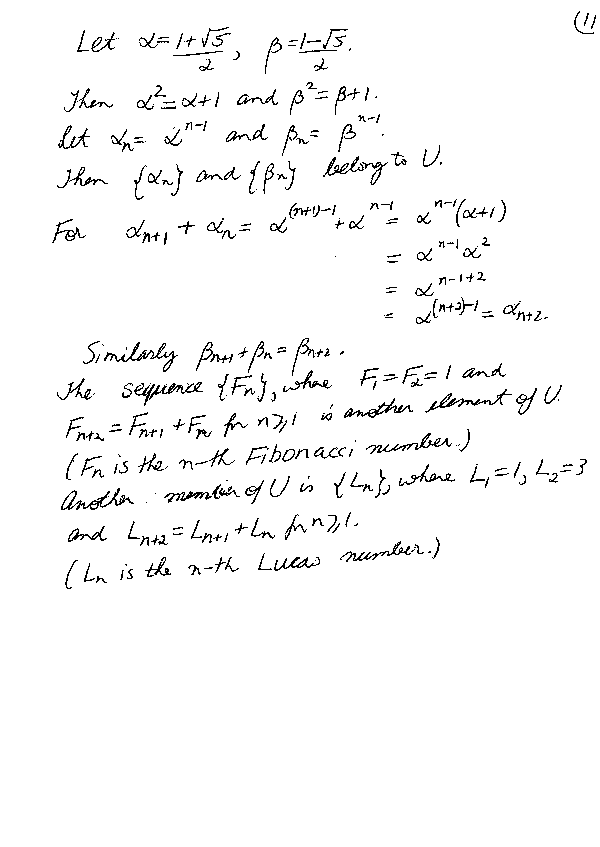 (11
Let α = (1+√5)/2, β = (1-√5)/2.
Then α² = α+1 and β² = β+1.
Let αₙ = α^(n-1) and βₙ = β^(n-1).
Then {αₙ} and {βₙ} belong to U.
For αₙ₊₁ + αₙ = α^((n+1)-1) + α^(n-1) = α^(n-1)(α+1)
= α^(n-1) α²
= α^(n-1+2)
= α^((n+2)-1) = αₙ₊₂.
Similarly βₙ₊₁ + βₙ = βₙ₊₂.
The sequence {Fₙ}, where F₁ = F₂ = 1 and
Fₙ₊₂ = Fₙ₊₁ + Fₙ for n ≥ 1 is another element of U.
(Fₙ is the n-th Fibonacci number.)
Another member of U is {Lₙ}, where L₁ = 1, L₂ = 3
and Lₙ₊₂ = Lₙ₊₁ + Lₙ for n ≥ 1.
(Lₙ is the n-th Lucas number.)